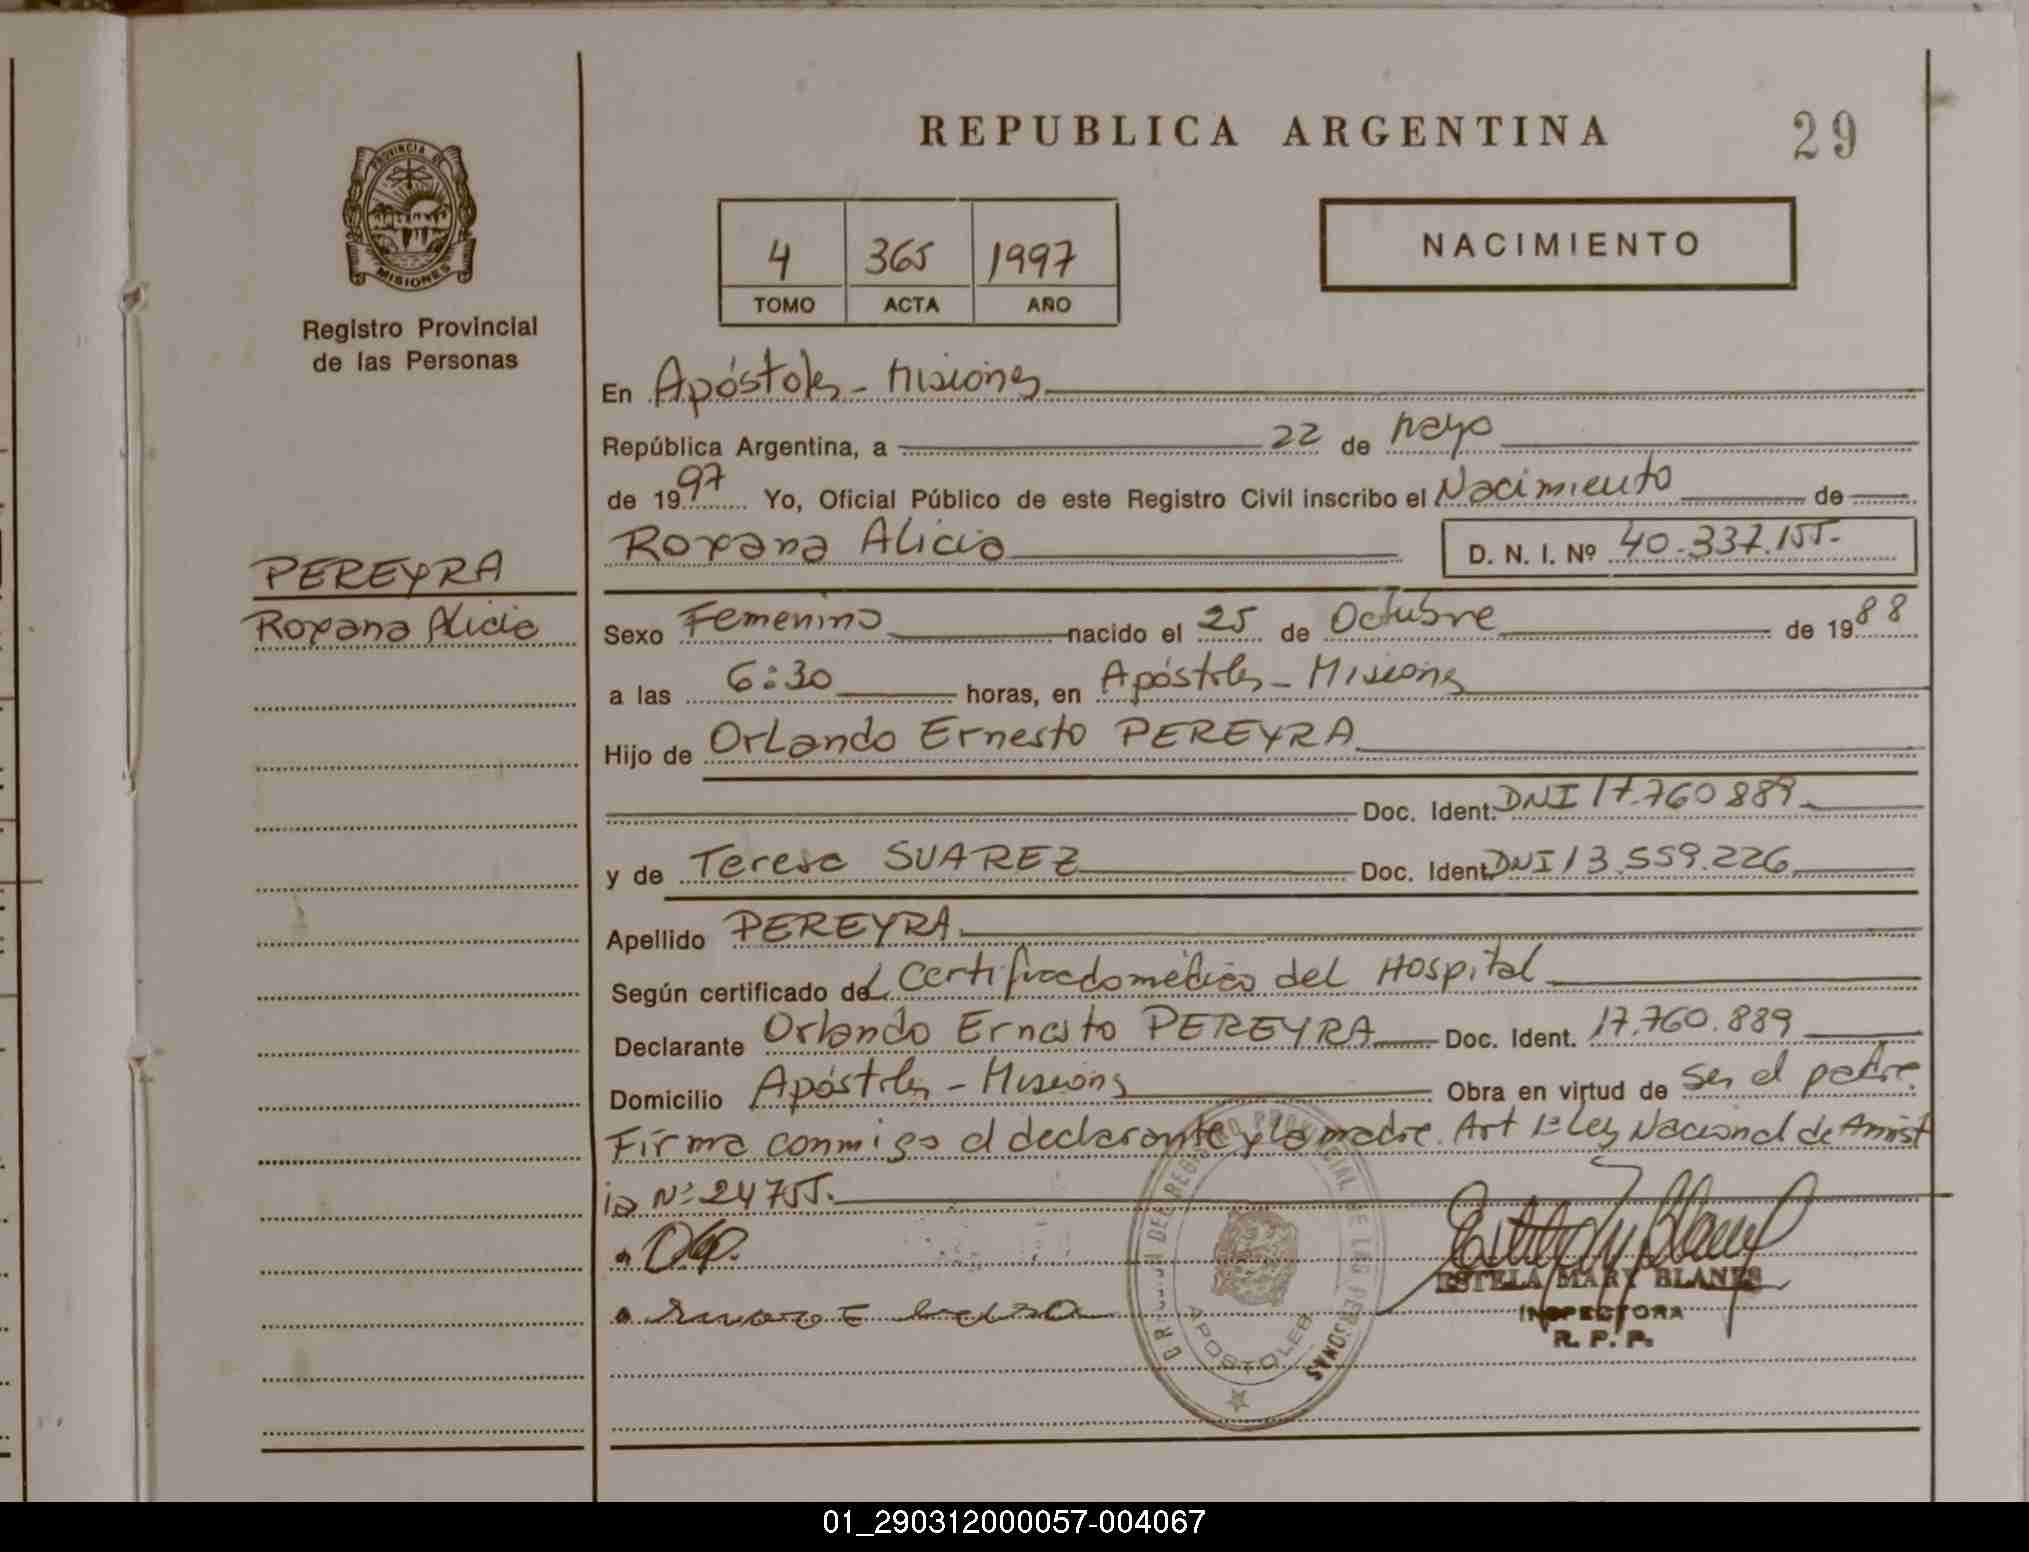 REPUBLICA ARGENTINA
29
PROVINCIA DE
MISIONES
Registro Provincial
de las Personas
4 365 1997
TOMO ACTA AÑO
NACIMIENTO
En Apóstoles - Misiones
República Argentina, a 22 de Mayo
de 1997 Yo, Oficial Público de este Registro Civil inscribo el Nacimiento de
Roxana Alicia D. N. I. Nº 40.337.155.-
PEREYRA
Roxana Alicia
Sexo Femenino nacido el 25 de Octubre de 1988
a las 6:30 horas, en Apóstoles - Misiones
Hijo de Orlando Ernesto PEREYRA
Doc. Ident. DNI 17.760889
y de Teresa SUAREZ Doc. Ident. DNI 13.559.226
Apellido PEREYRA
Según certificado del Certificado médico del Hospital
Declarante Orlando Ernesto PEREYRA Doc. Ident. 17.760.889
Domicilio Apóstoles - Misiones Obra en virtud de ser el padre.
Firma conmigo el declarante y la madre. Art 1º Ley Nacional de Amnist
ia Nº 24755.
REGISTRO PROVINCIAL DE LAS PERSONAS
APOSTOLES
ESTELA MARY BLANES
INSPECTORA
R. P. P.
01_290312000057-004067